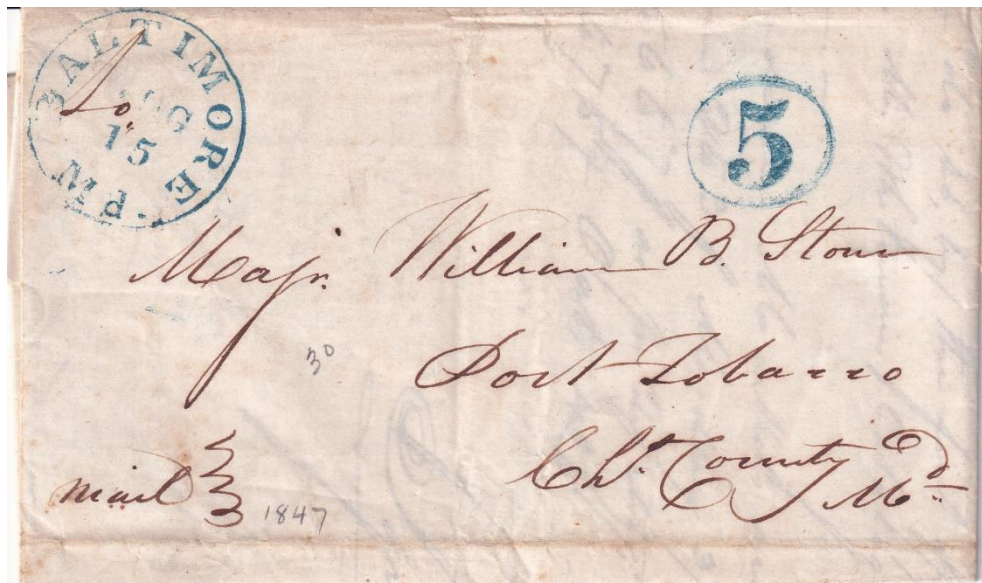 BALTIMORE Md.
AUG
15
5
Majr. William B. Stone
Port Tobacco
Chs. County Md
mail
30
1847